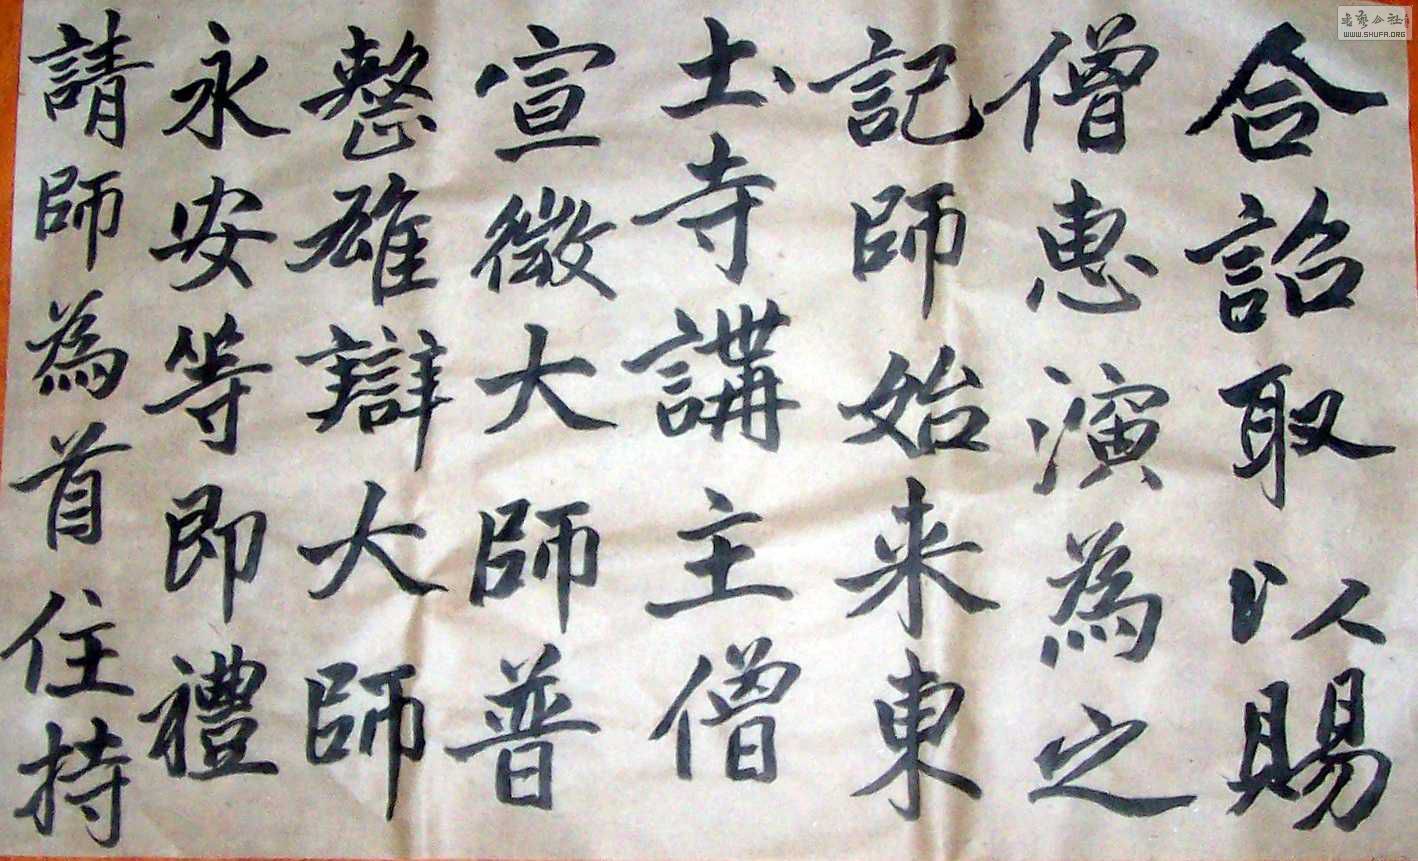 合詔取以賜
僧惠演為之
記師始来東
土寺講主僧
宣微大師普
整雄辯大師
永安等即禮
請師為首住持
书艺公社
WWW.SHUFA.ORG